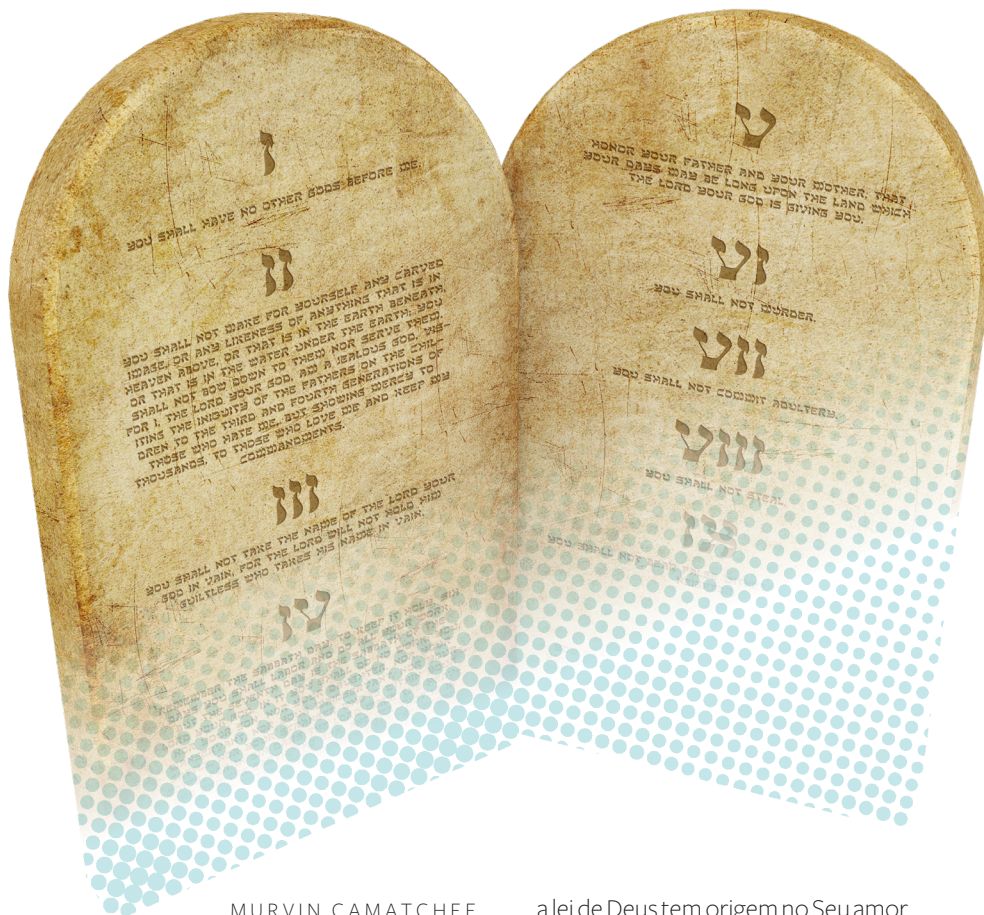 I
YOU SHALL HAVE NO OTHER GODS BEFORE ME.
II
YOU SHALL NOT MAKE FOR YOURSELF ANY CARVED
IMAGE, OR ANY LIKENESS OF ANYTHING THAT IS IN
HEAVEN ABOVE, OR THAT IS IN THE EARTH BENEATH,
OR THAT IS IN THE WATER UNDER THE EARTH; YOU
SHALL NOT BOW DOWN TO THEM NOR SERVE THEM.
FOR I, THE LORD YOUR GOD, AM A JEALOUS GOD, VIS-
ITING THE INIQUITY OF THE FATHERS ON THE CHIL-
DREN TO THE THIRD AND FOURTH GENERATIONS OF
THOSE WHO HATE ME, BUT SHOWING MERCY TO
THOUSANDS, TO THOSE WHO LOVE ME AND KEEP MY
COMMANDMENTS.
III
YOU SHALL NOT TAKE THE NAME OF THE LORD YOUR
GOD IN VAIN, FOR THE LORD WILL NOT HOLD HIM
GUILTLESS WHO TAKES HIS NAME IN VAIN.
IV
REMEMBER THE SABBATH DAY, TO KEEP IT HOLY. SIX
YOU SHALL LABOR AND DO ALL YOUR WORK
V
HONOR YOUR FATHER AND YOUR MOTHER, THAT
YOUR DAYS MAY BE LONG UPON THE LAND WHICH
THE LORD YOUR GOD IS GIVING YOU.
VI
YOU SHALL NOT MURDER.
VII
YOU SHALL NOT COMMIT ADULTERY.
VIII
YOU SHALL NOT STEAL.
IX
YOU SHALL NOT BEAR
MURVIN CAMATCHEE
a lei de Deus tem origem no Seu amor